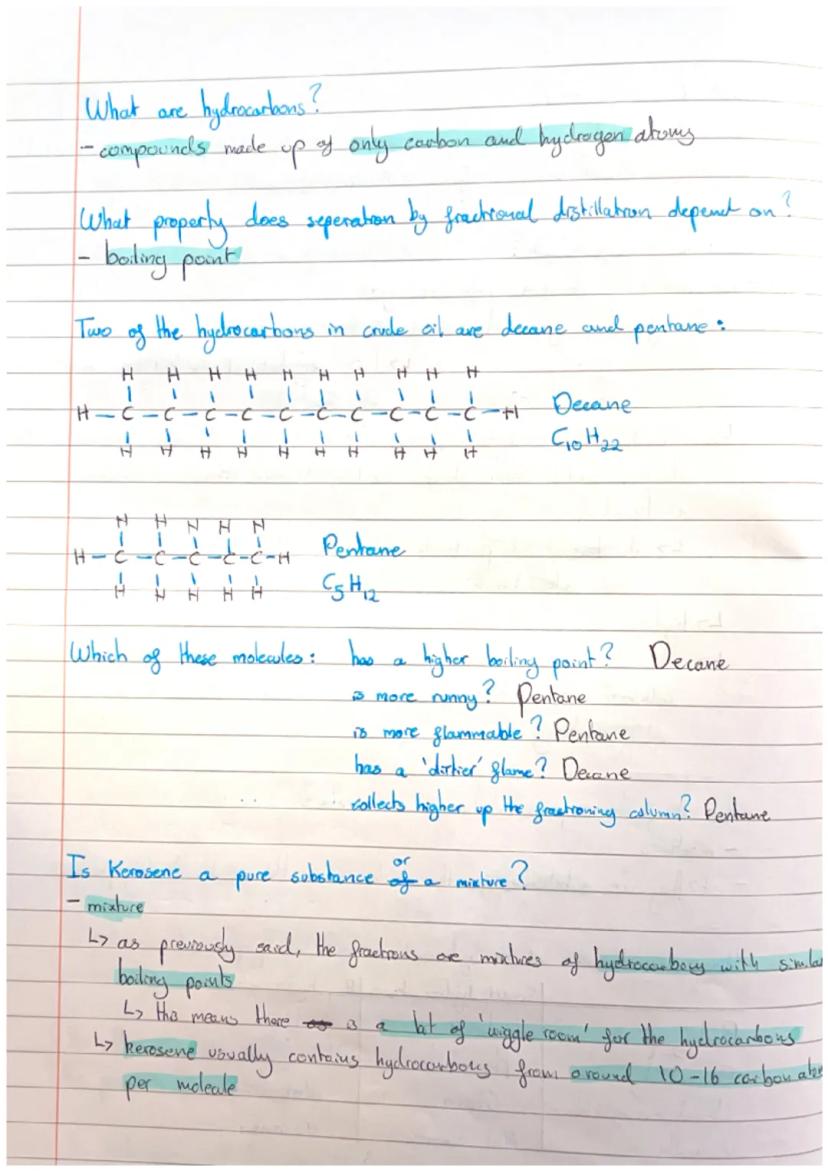 What are hydrocarbons?
- compounds made up of only carbon and hydrogen atoms
What property does seperation by fractional distillation depend on?
- boiling point
Two of the hydrocarbons in crude oil are decane and pentane:
H H H H H H H H H H
H-C-C-C-C-C-C-C-C-C-C-H Decane
H H H H H H H H H H C10H22
H H H H H
H-C-C-C-C-C-H Pentane
H H H H H C5H12
Which of these molecules: has a higher boiling point? Decane
is more runny? Pentane
is more flammable? Pentane
has a 'dirtier' flame? Decane
collects higher up the fractioning column? Pentane
Is Kerosene a pure substance or a mixture?
- mixture
↳ as previously said, the fractions are mixtures of hydrocarbons with similar
boiling points
↳ this means there is a bit of 'wiggle room' for the hydrocarbons
↳ kerosene usually contains hydrocarbons from around 10-16 carbon
per molecule